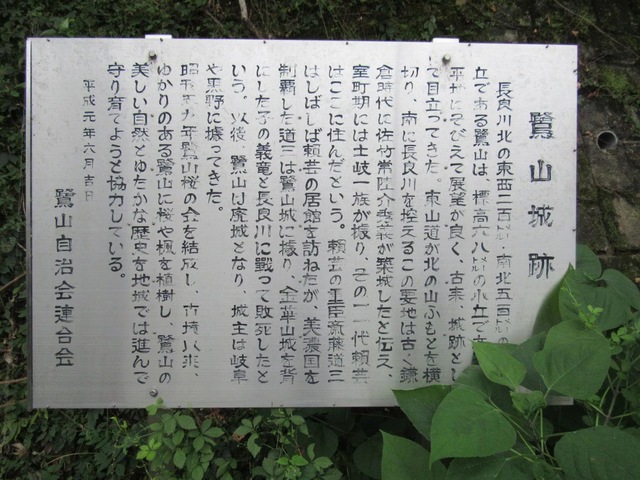 鷺山城跡
長良川北の東西二百㍍、南北五百㍍の
立である鷺山は、標高六八㍍の小立で
平地にそびえて展望が良く、古来、城跡とし
て目立ってきた。東山道が北の山ふもとを横
切り、南に長良川を控えるこの要地は古く鎌
倉時代に佐竹常陸介秀義が築城したと伝え、
室町期には土岐一族が據り、その一代頼芸
はここに住んだという。頼芸の重臣斎藤道三
はしばしば頼芸の居館を訪ねたが、美濃国を
制覇した道三は鷺山城に據り、金華山城を背
にした子の義竜と長良川に戦って敗死したと
いう。以後、鷺山は廃城となり、城主は岐阜
や黒野に據ってきた。
昭和五九年鷺山桜の会を結成し、竹境以来、
ゆかりのある鷺山に桜や楓を植樹し、鷺山の
美しい自然とゆたかな歴史を地域では進んで
守り育てようと協力している。
平成元年六月吉日
鷺山自治会連合会